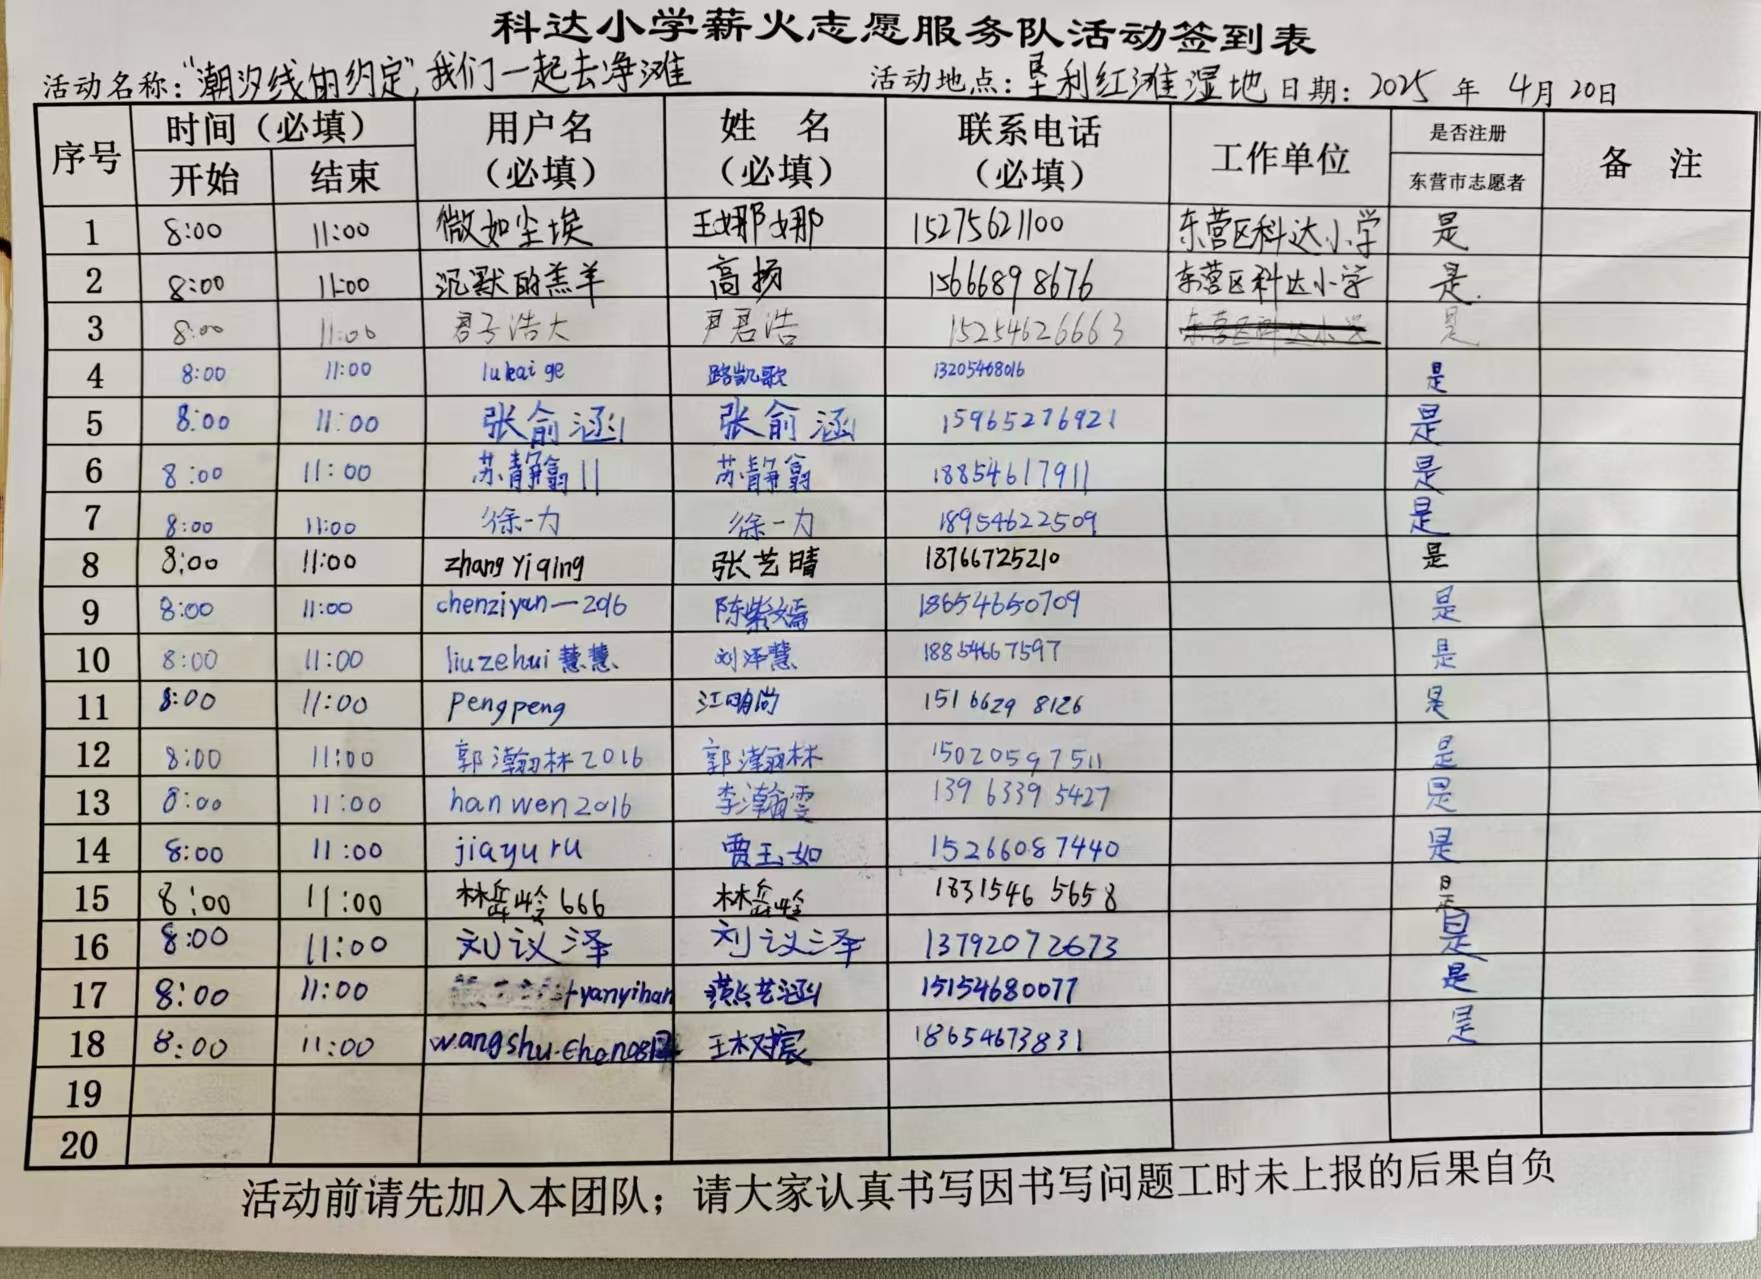 科达小学薪火志愿服务队活动签到表
活动名称："潮汐线的约定",我们一起去净滩 活动地点：垦利红滩湿地 日期：2025 年 4月 20日
序号 时间（必填） 用户名（必填） 姓 名（必填） 联系电话（必填） 工作单位 是否注册 备 注
开始 结束 东营市志愿者
1 8:00 11:00 微如尘埃 王娜娜 15275621100 东营区科达小学 是
2 8:00 11:00 沉默的羔羊 高扬 15666898676 东营区科达小学 是.
3 8:00 11:00 君子浩大 尹君浩 15254626663 东营区科达小学 是
4 8:00 11:00 lukaige 路凯歌 13205468016 是
5 8:00 11:00 张俞涵11 张俞涵 15965276921 是
6 8:00 11:00 苏静翕11 苏静翕 18854617911 是
7 8:00 11:00 徐一力 徐一力 18954622509 是
8 8:00 11:00 zhangyiqing 张艺晴 18766725210 是
9 8:00 11:00 chenziyan—2016 陈紫嫣 18654650709 是
10 8:00 11:00 liuzehui慧慧 刘泽慧 18854667597 是
11 8:00 11:00 pengpeng 江明尚 15166298126 是
12 8:00 11:00 郭瀚林2016 郭瀚林 15020597511 是
13 8:00 11:00 hanwen2016 李瀚雯 13963395427 是
14 8:00 11:00 jiayuru 贾玉如 15266087440 是
15 8:00 11:00 林岳岭666 林岳岭 18315465658 是
16 8:00 11:00 刘议泽 刘议泽 13792072673 是
17 8:00 11:00 yanyihan 艺涵 15154680077 是
18 8:00 11:00 王树宸 18654673831 是
19
20
活动前请先加入本团队；请大家认真书写因书写问题工时未上报的后果自负